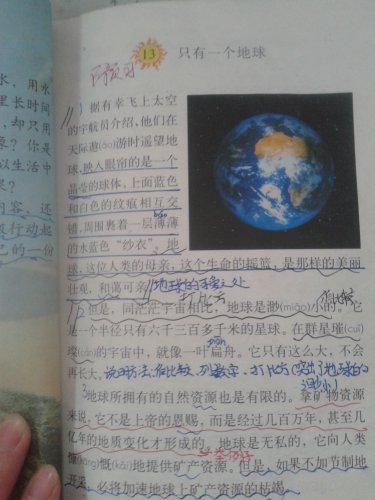 水，用水
里长时间
，却只用
象？你是
以生活中
？
内容，还
被行动起
己的一份
13 只有一个地球
据有幸飞上太空
的宇航员介绍，他们在
天际遨(áo)游时遥望地
球，映入眼帘的是一个
晶莹的球体，上面蓝色
和白色的纹痕相互交
错，周围裹着一层薄薄
的水蓝色“纱衣”。地
球，这位人类的母亲，这个生命的摇篮，是那样的美丽
壮观，和蔼可亲。
但是，同茫茫宇宙相比，地球是渺(miǎo)小的。它
是一个半径只有六千三百多千米的星球。在群星璀(cuǐ)
璨(càn)的宇宙中，就像一叶扁舟。它只有这么大，不会
再长大。 说明方法：作比较、列数字、打比方(突出了地球的
渺小)
地球所拥有的自然资源也是有限的。拿矿物资源
来说，它不是上帝的恩赐，而是经过几百万年，甚至几
亿年的地质变化才形成的。地球是无私的，它向人类
慷(kāng)慨(kǎi)地提供矿产资源。但是，如果不加节制地
开采，必将加速地球上矿产资源的枯竭。